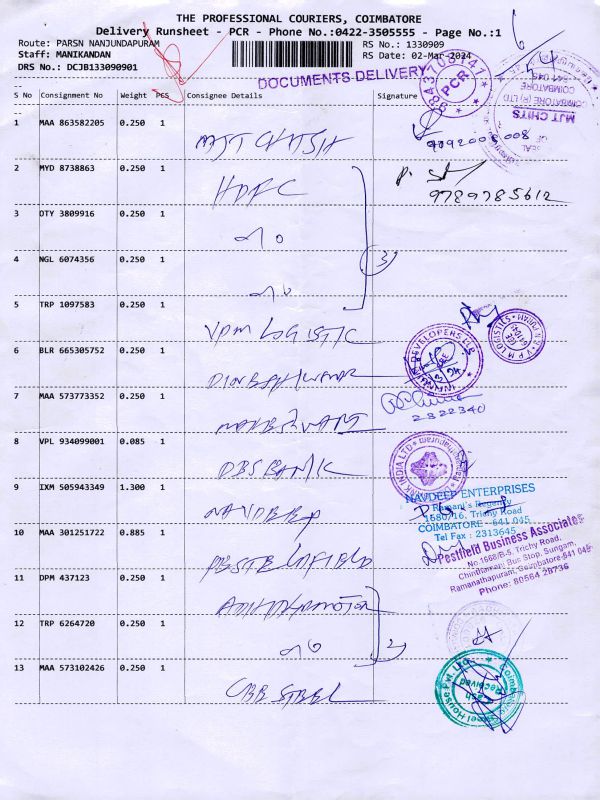 THE PROFESSIONAL COURIERS, COIMBATORE
Delivery Runsheet - PCR - Phone No.:0422-3505555 - Page No.:1
Route: PARSN NANJUNDAPURAM
RS No.: 1330909
Staff: MANIKANDAN
RS Date: 02-Mar-2024
DRS No.: DCJB133090901
DOCUMENTS DELIVERY
PCR
S No Consignment No Weight PCS Consignee Details Signature
1 MAA 863582205 0.250 1
9092005008
MJT CHITS
COIMBATORE
2 MYD 8738863 0.250 1 HDFC
9789785612
3 DTY 3809916 0.250 1
4 NGL 6074356 0.250 1
3
5 TRP 1097583 0.250 1 VPM LOGISTIC
VPM LOGISTICS
6 BLR 665305752 0.250 1
DEVELOPERS LLP
7 MAA 573773352 0.250 1
2322340
8 VPL 934099001 0.085 1 DBS BANK
BANK INDIA LTD
9 IXM 505943349 1.300 1 NAVDEEP
NAVDEEP ENTERPRISES
Ramani's Regency
1680/16, Trichy Road
COIMBATORE - 641 045
Tel Fax : 2313645
10 MAA 301251722 0.885 1
Pestfield Business Associates
No.1668/B-5, Trichy Road,
Chinthamani Bus Stop, Sungam,
Ramanathapuram, Coimbatore-641 045
Phone: 80564 28736
11 DPM 437123 0.250 1
12 TRP 6264720 0.250 1
2
13 MAA 573102426 0.250 1 CBB STEEL
Steel House Pvt. Ltd.
Coimbatore
Received